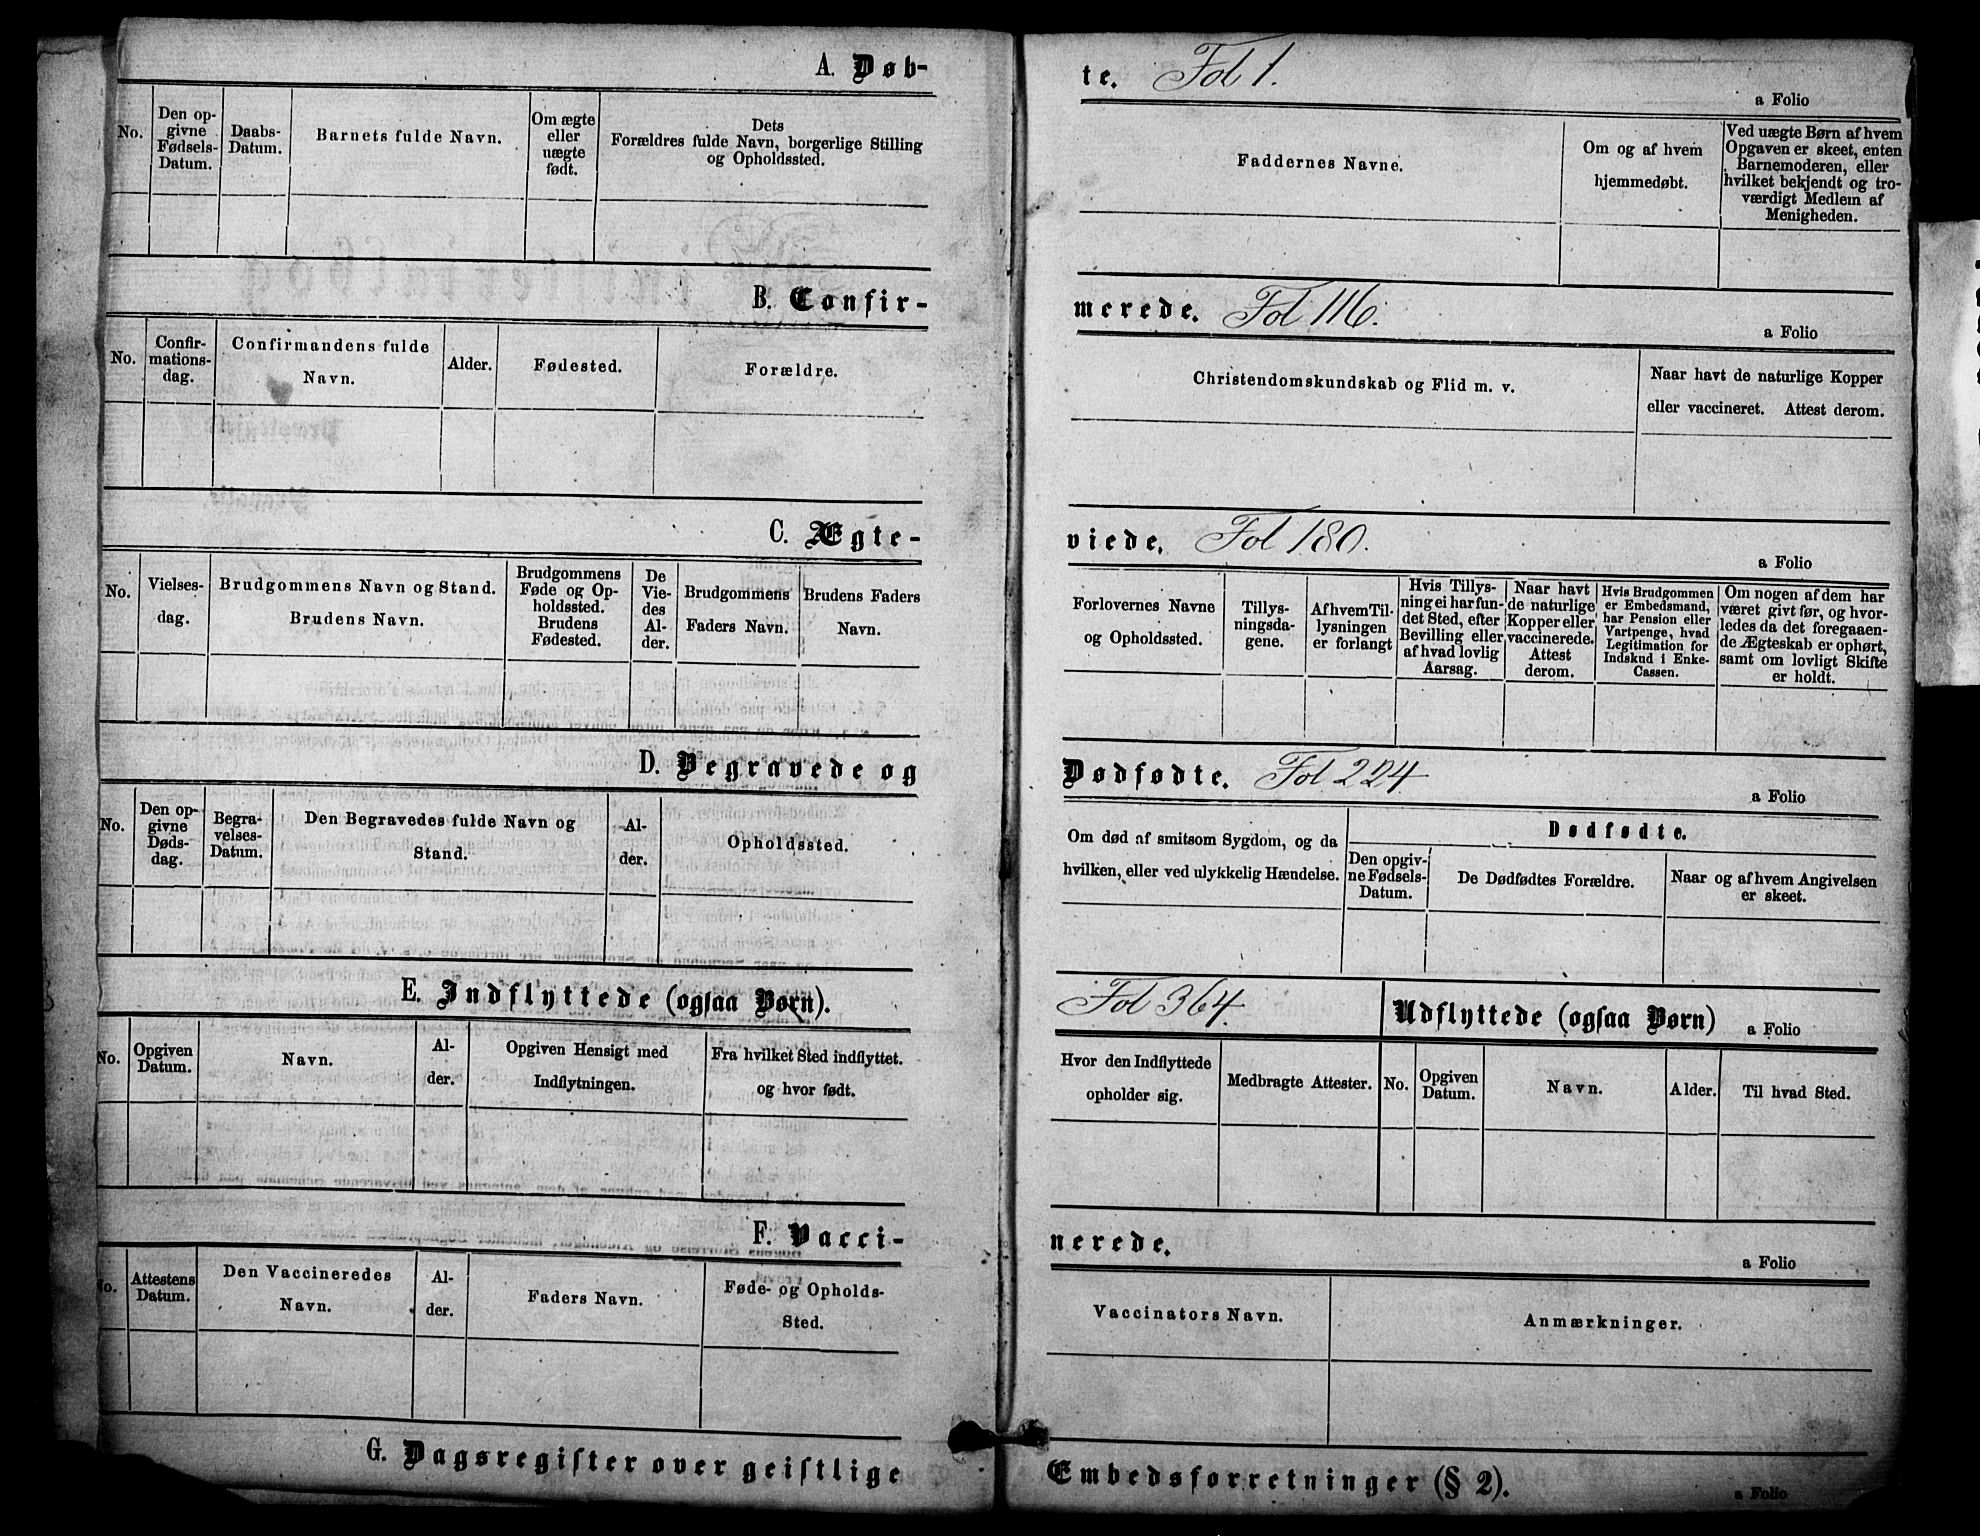 A. Døb-
te. Fol 1.
a Folio
No.
Den op-
givne
Fødsels-
Datum.
Daabs-
Datum.
Barnets fulde Navn.
Om ægte
eller
uægte
født.
Dets
Forældres fulde Navn, borgerlige Stilling
og Opholdssted.
Faddernes Navne.
Om og af hvem
hjemmedøbt.
Ved uægte Børn af hvem
Opgaven er skeet, enten
Barnemoderen, eller
hvilket bekjendt og tro-
værdigt Medlem af
Menigheden.
B. Confir-
merede. Fol 116.
a Folio
No.
Confir-
mations-
dag.
Confirmandens fulde
Navn.
Alder.
Fødested.
Forældre.
Christendomskundskab og Flid m. v.
Naar havt de naturlige Kopper
eller vaccineret. Attest derom.
C. Ægte-
viede. Fol 180.
a Folio
No.
Vielses-
dag.
Brudgommens Navn og Stand.
Brudens Navn.
Brudgommens
Føde og Op-
holdssted.
Brudens
Fødested.
De
Vie-
des
Al-
der.
Brudgommens
Faders Navn.
Brudens Faders
Navn.
Forlovernes Navne
og Opholdssted.
Tillys-
ningsda-
gene.
Af hvem Til-
lysningen
er forlangt
Hvis Tillys-
ning ei har fun-
det Sted, efter
Bevilling eller
af hvad lovlig
Aarsag.
Naar havt
de naturlige
Kopper eller
vaccinerede.
Attest
derom.
Hvis Brudgommen
er Embedsmand,
har Pension eller
Vartpenge, hvad
Legitimation for
Indskud i Enke-
Cassen.
Om nogen af dem har
været givt før, og hvor-
ledes da det foregaaen-
de Ægteskab er ophørt,
samt om lovligt Skifte
er holdt.
D. Begravede og
Dødfødte. Fol 224
a Folio
No.
Den op-
givne
Døds-
dag.
Begra-
velses-
Datum.
Den Begravedes fulde Navn og
Stand.
Al-
der.
Opholdssted.
Om død af smitsom Sygdom, og da
hvilken, eller ved ulykkelig Hændelse.
Dødfødte.
Den opgiv-
ne Fødsels-
Datum.
De Dødfødtes Forældre.
Naar og af hvem Angivelsen
er skeet.
E. Indflyttede (ogsaa Børn).
Fol 364.
Udflyttede (ogsaa Børn)
a Folio
No.
Opgiven
Datum.
Navn.
Al-
der.
Opgiven Hensigt med
Indflytningen.
Fra hvilket Sted indflyttet.
og hvor født.
Hvor den Indflyttede
opholder sig.
Medbragte Attester.
No.
Opgiven
Datum.
Navn.
Alder.
Til hvad Sted.
F. Vacci-
nerede.
a Folio
No.
Attestens
Datum.
Den Vaccineredes
Navn.
Al-
der.
Faders Navn.
Føde- og Opholds-
Sted.
Vaccinators Navn.
Anmærkninger.
G. Dagsregister over geistlige
Embedsforretninger (§ 2).
a Folio